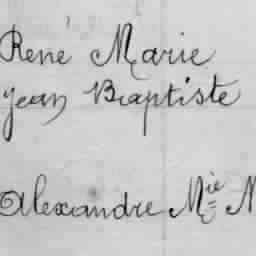 René Marie
Jean Baptiste
Alexandre Mie